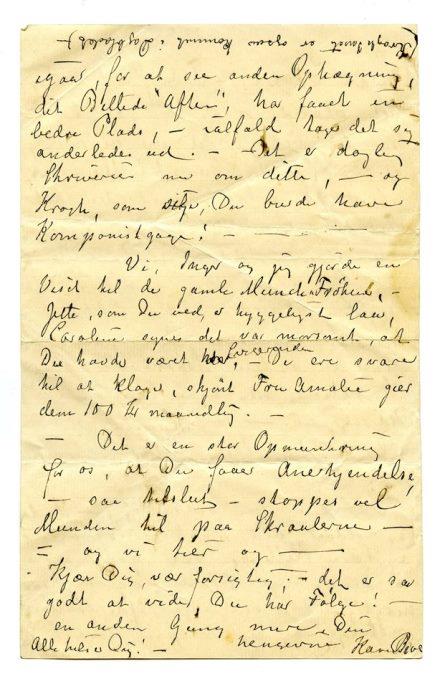 (Krogh havst er ogsaa kommet i Dagbladet)
igaar, for at see anden Ophægning,
dit Billede "Aften", har faaet en
bedre Plads, – ialfald tage det sig
anderledes ud. – Det er daglig
Skriverier nu om ditte, – og
Krogh, som siger, Du burde have
Komponistgage! –
Vi, Inger og jeg gjorde en
Visit til de gamle Munch Frøkene, –
Jette, som Du ved, er hyggeligst lav,
Caroline synes det var morsomt, at
Du havde været –
De ere svare
til at klage, skjønt Fru Amalie gier
dem 100 Kr maanedlig. –
– Det er en stor Opmuntring
for os, at Du faaer Anerkjendelse,
– saa tilslut – stoppes vel
Munden til paa Skraalerne –
– og vi tier og –
Kjære Dig, vær forsigtig; – det er saa
godt at vide, Du har Følge! –
en anden Gang mere, Din
Alle hilser Dig! – hengivne